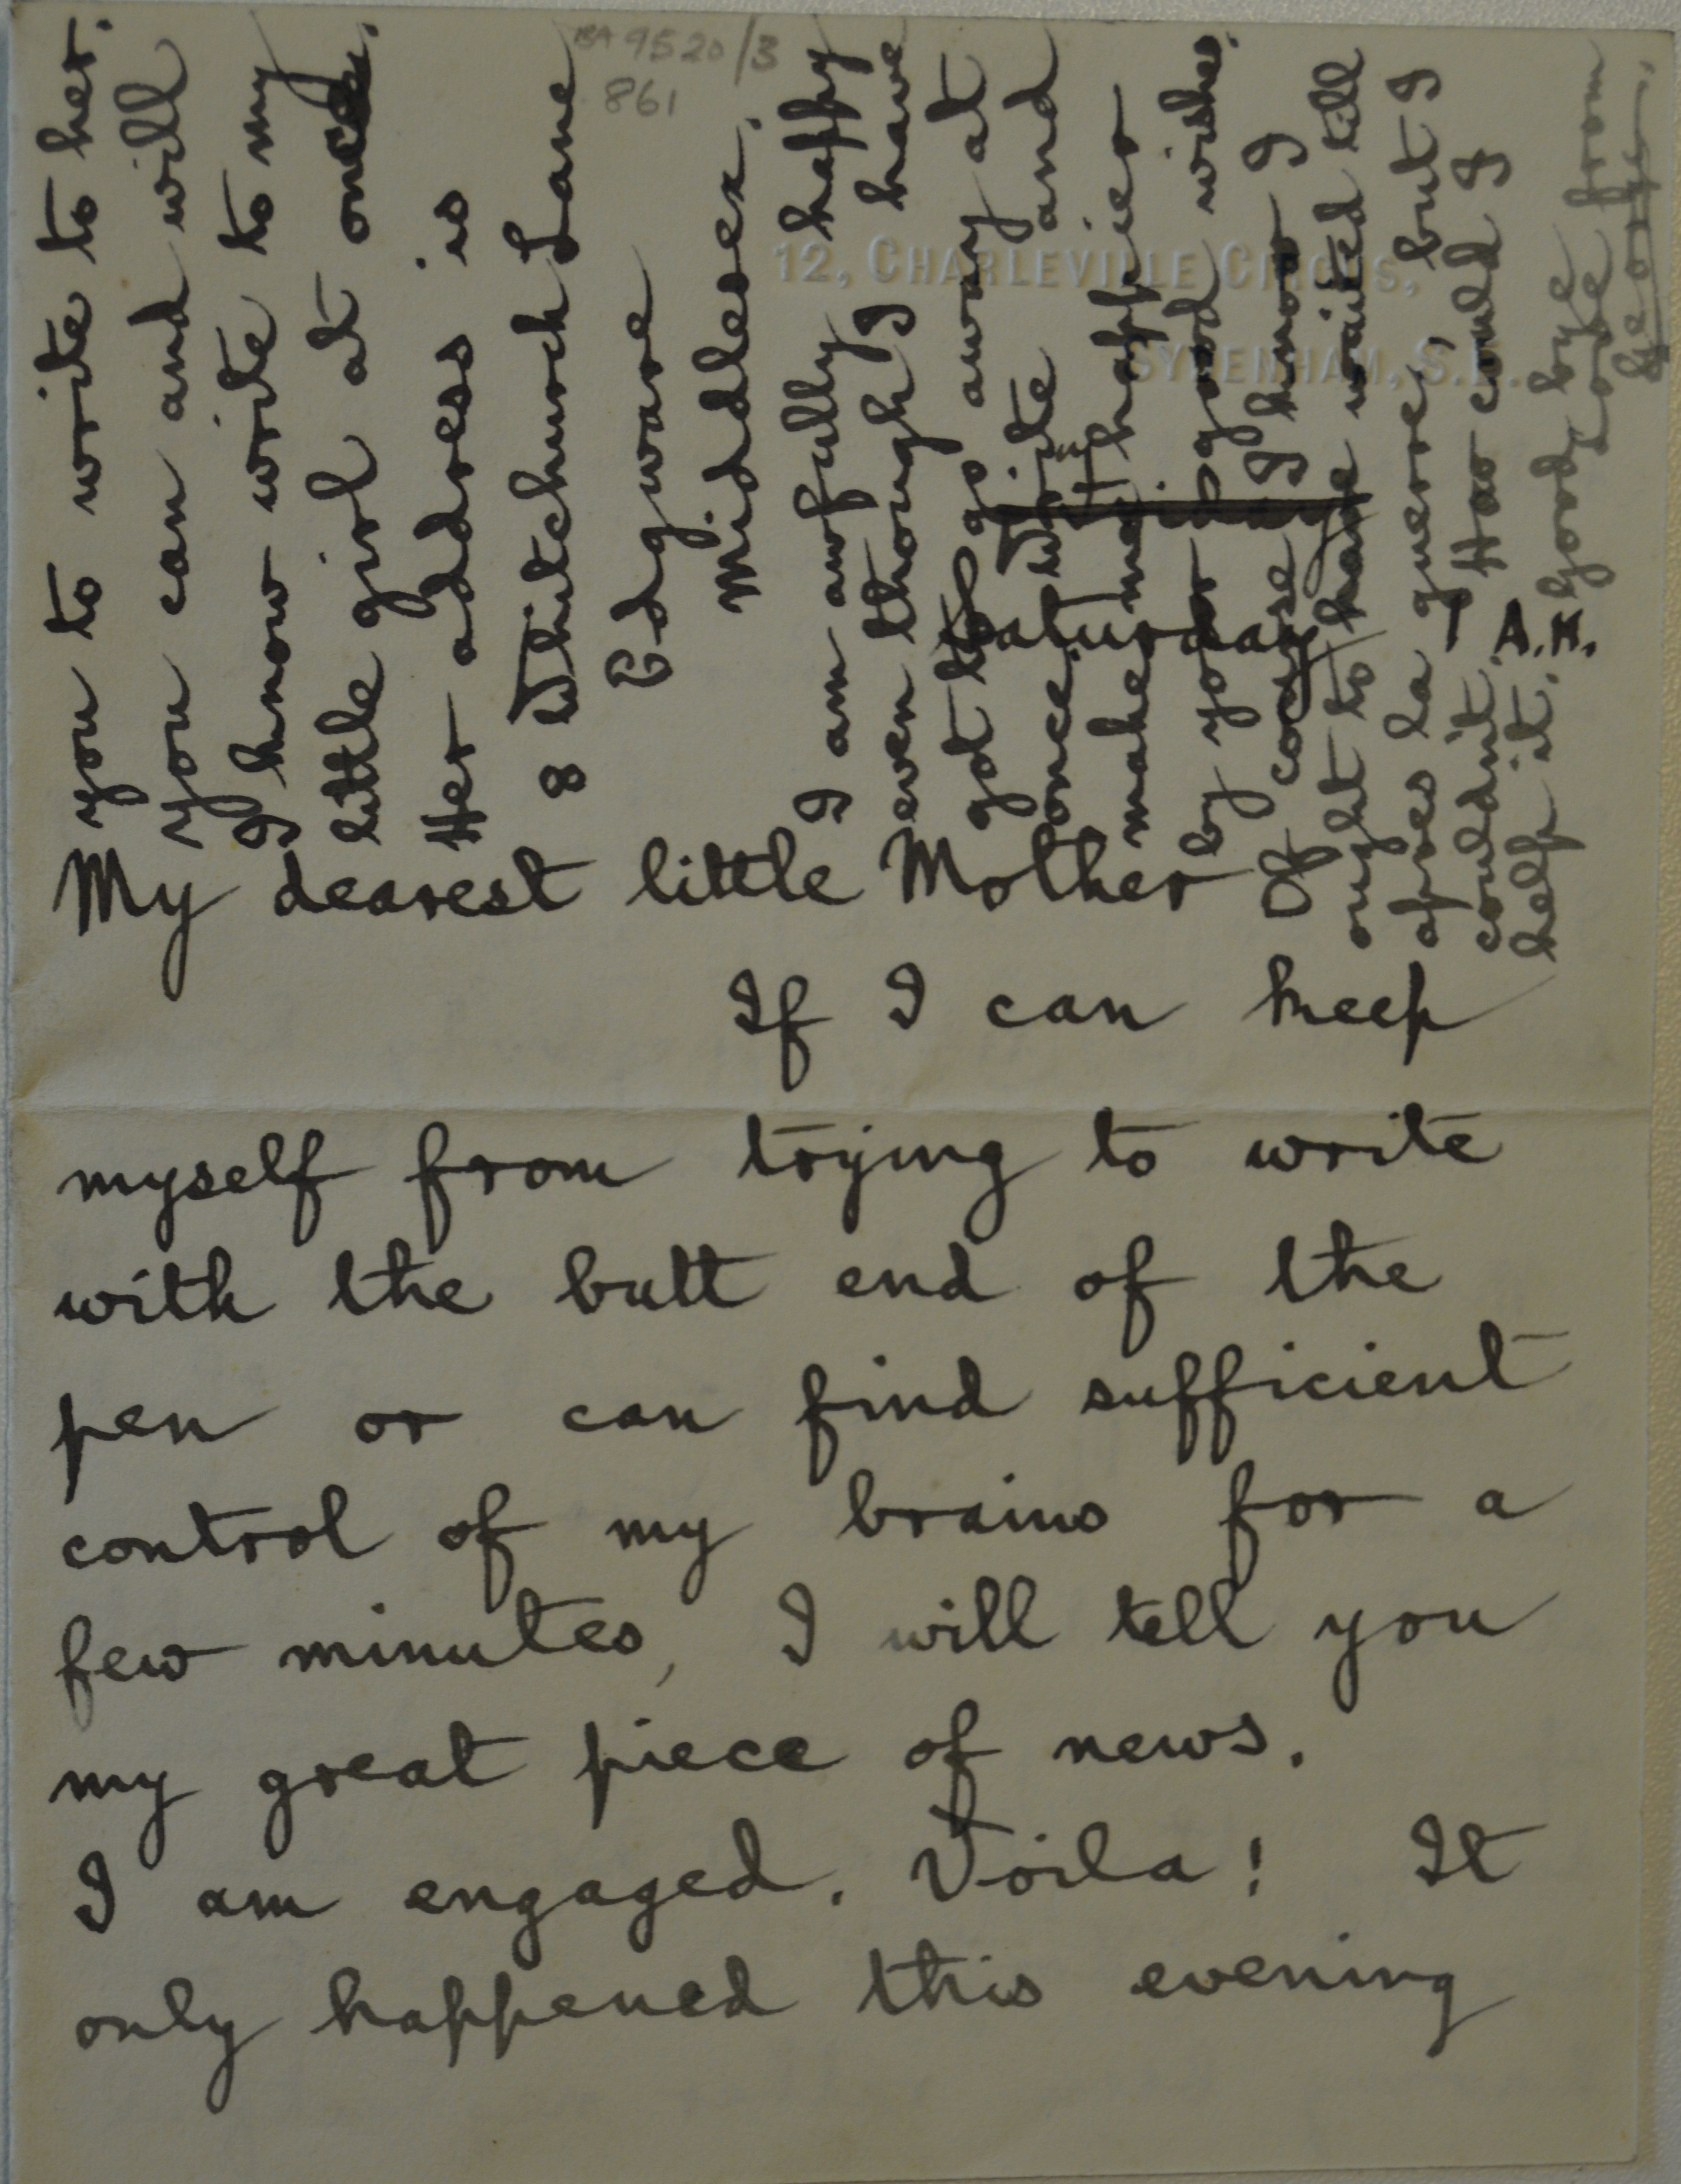 BA 9520/3
861
12, CHARLEVILLE CIRCUS,
SYDENHAM, S.E.
Friday
Saturday 1 A.M.
My dearest little Mother
If I can keep
myself from trying to write
with the butt end of the
pen or can find sufficient
control of my brains for a
few minutes, I will tell you
my great piece of news.
I am engaged. Voila! It
only happened this evening
you to write to her.
you can and will
I know write to my
little girl at once.
Her address is
8 Whitchurch Lane
Edgware
Middlesex.
I am awfully happy
even though I have
got to go away at
once. Write and
make me happier
by your good wishes.
Of course I know I
ought to have waited till
apres la guerre, but I
couldn't. How could I
help it. Good bye from
Love
George.